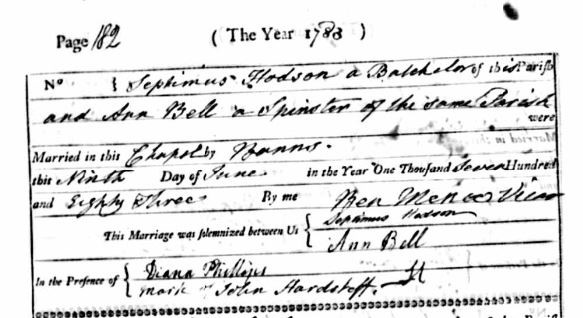 Page 182 ( The Year 1783 )
No { Septimus Hodson a Batchelor of this Parish
and Ann Bell a Spinster of the same Parish
were
Married in this Chapel by Banns.
this Ninth Day of June in the Year One Thousand Seven Hundred
and Eighty Three By me Ben Mence Vicar
This Marriage was solemnized between Us { Septimus Hodson
Ann Bell
In the Presence of { Diana Phillips
mark of John Hardstoff.